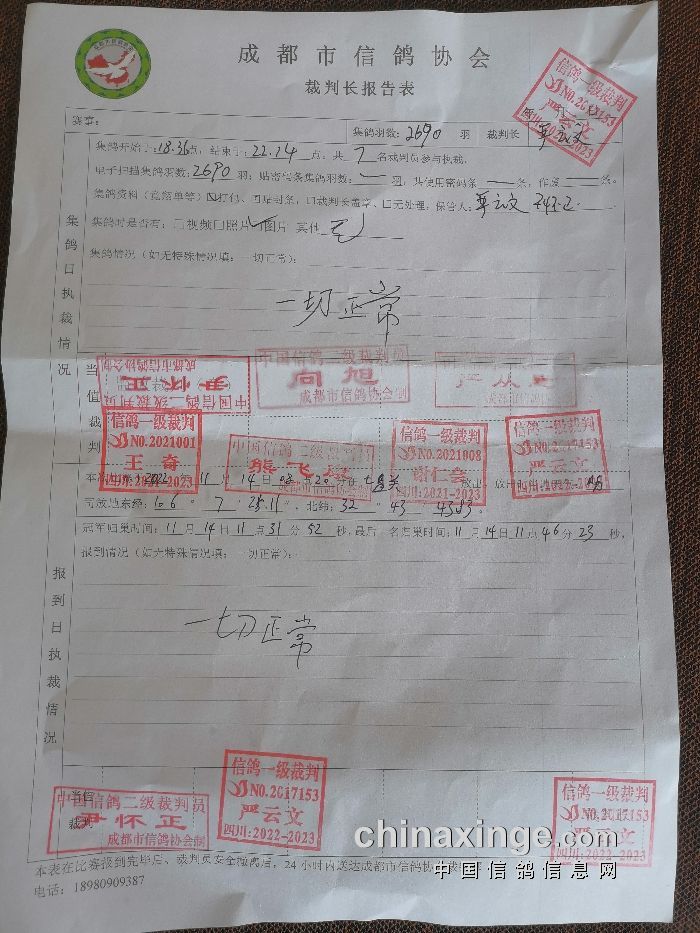 成都市信鸽协会
裁判长报告表
信鸽一级裁判
NO.2017153
严云文
四川:2022-2023
赛事:
集鸽羽数: 2690 羽 裁判长 严云文
集鸽开始于:18.36点,结束于:22.24点;共7名裁判员参与执裁。
电子扫描集鸽羽数:2690羽,贴密信条集鸽羽数:—羽,共使用密码条—条,作废—条。
打包、封条、口裁判长盖章、口无处理,保管人:严云文
集鸽时是否有:口视频口照片口图片 其他 无
集鸽情况(如无特殊情况填:一切正常):
一切正常
集鸽日执裁情况
当值裁判
中国信鸽二级裁判员
尹怀正
成都市信鸽协会制
中国信鸽二级裁判员
向旭
成都市信鸽协会制
信鸽一级裁判
NO.2021001
王奇
四川:2021-2023
中国信鸽二级裁判员
信鸽一级裁判
NO.2021008
谢仁会
四川:2021-2023
信鸽一级裁判
NO.2017153
严云文
四川:2022-2023
2022 11月14日08 20
司放地东经:106 ° 7 ′ 25.11 ″,北纬:32 ° 43
冠军归巢时间:11月14日11点31分52秒,最后一名归巢时间:11月14日11点46分23秒。
报到情况(如无特殊情况填:一切正常):
一切正常
报到日执裁情况
当值裁判
中国信鸽二级裁判员
尹怀正
成都市信鸽协会制
信鸽一级裁判
NO.2017153
严云文
四川:2022-2023
信鸽一级裁判
NO.2017153
严云文
四川:2022-2023
chinaxinge.com
中国信鸽信息网
本表在比赛报到完毕后,裁判员安全撤离后,24小时内送达成都市信鸽协
电话:18980909387